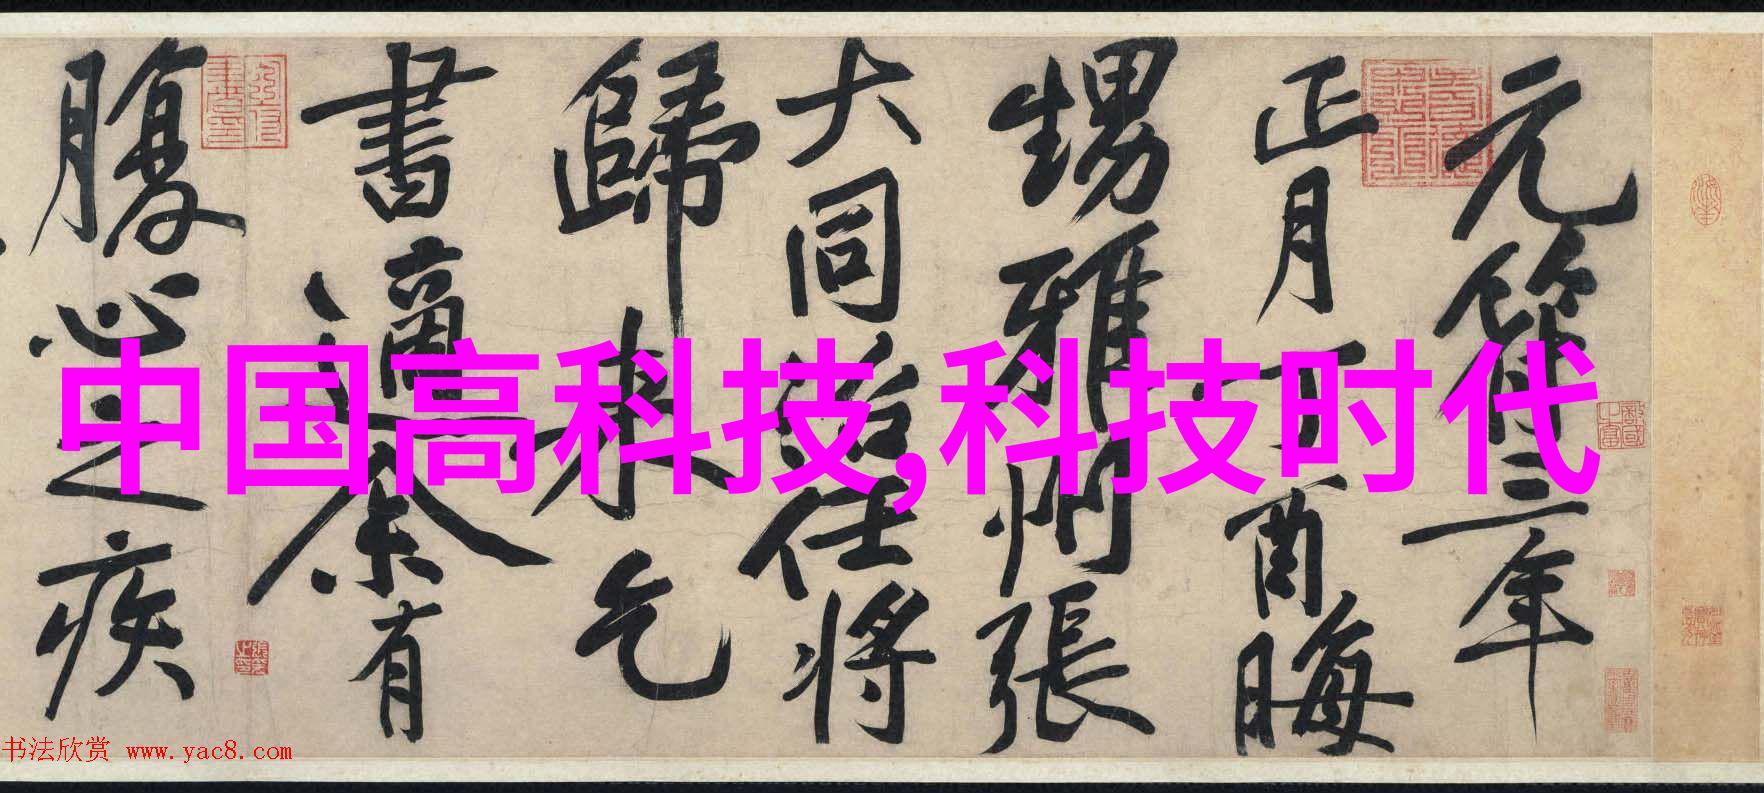 元符三年
正月丁酉晦
甥雅州張
大同治任將
歸來乞
書適余有
腹心之疾
中国高科技,科技时代
书法欣赏 www.yac8.com